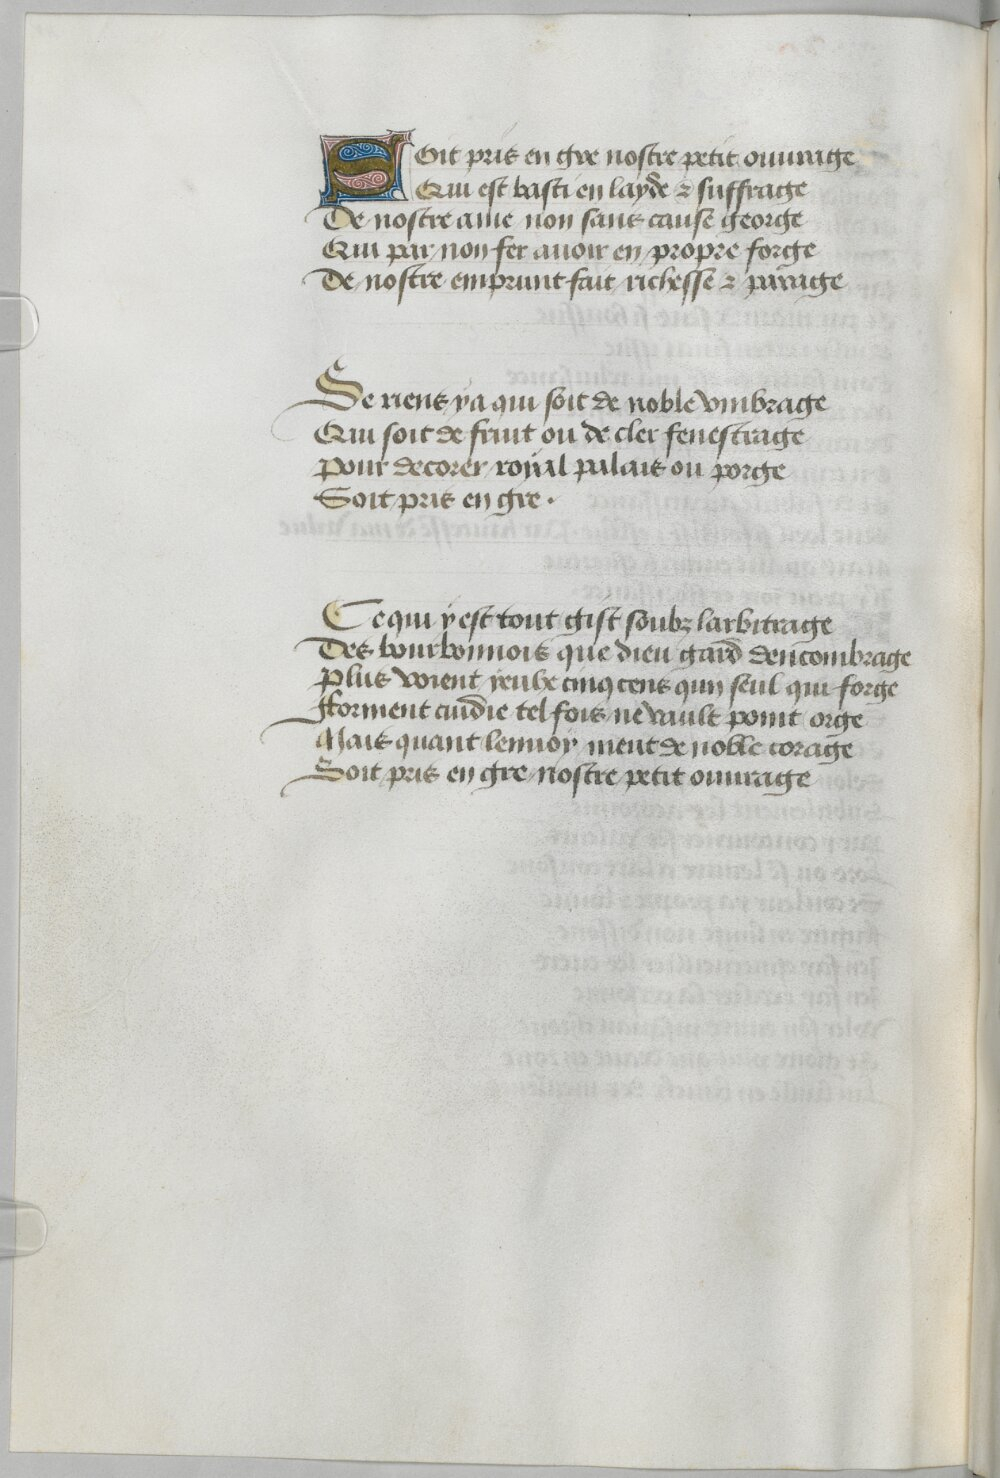 Soit pris en gre nostre petit ouurage
Qui est basti en layde & suffrage
De nostre amé non sans cause george
Qui par non fer auoir en propre forge
De nostre emprunt fait richesse & parage
Se riens ya qui soit de noble vmbrage
Qui soit de fruit ou de cler fenestrage
Pour decorer royal palais ou porge
Soit pris en gre .
Ce qui y est tout gist soubz larbitrage
Des bourbonnois que dieu gard dencombrage
Plus voient yeulx cinq cens qun seul qui forge
fforment cuidie tel fois ne vault point orge
Mais quant lennoy vient de noble corage
Soit pris en gre nostre petit ouurage